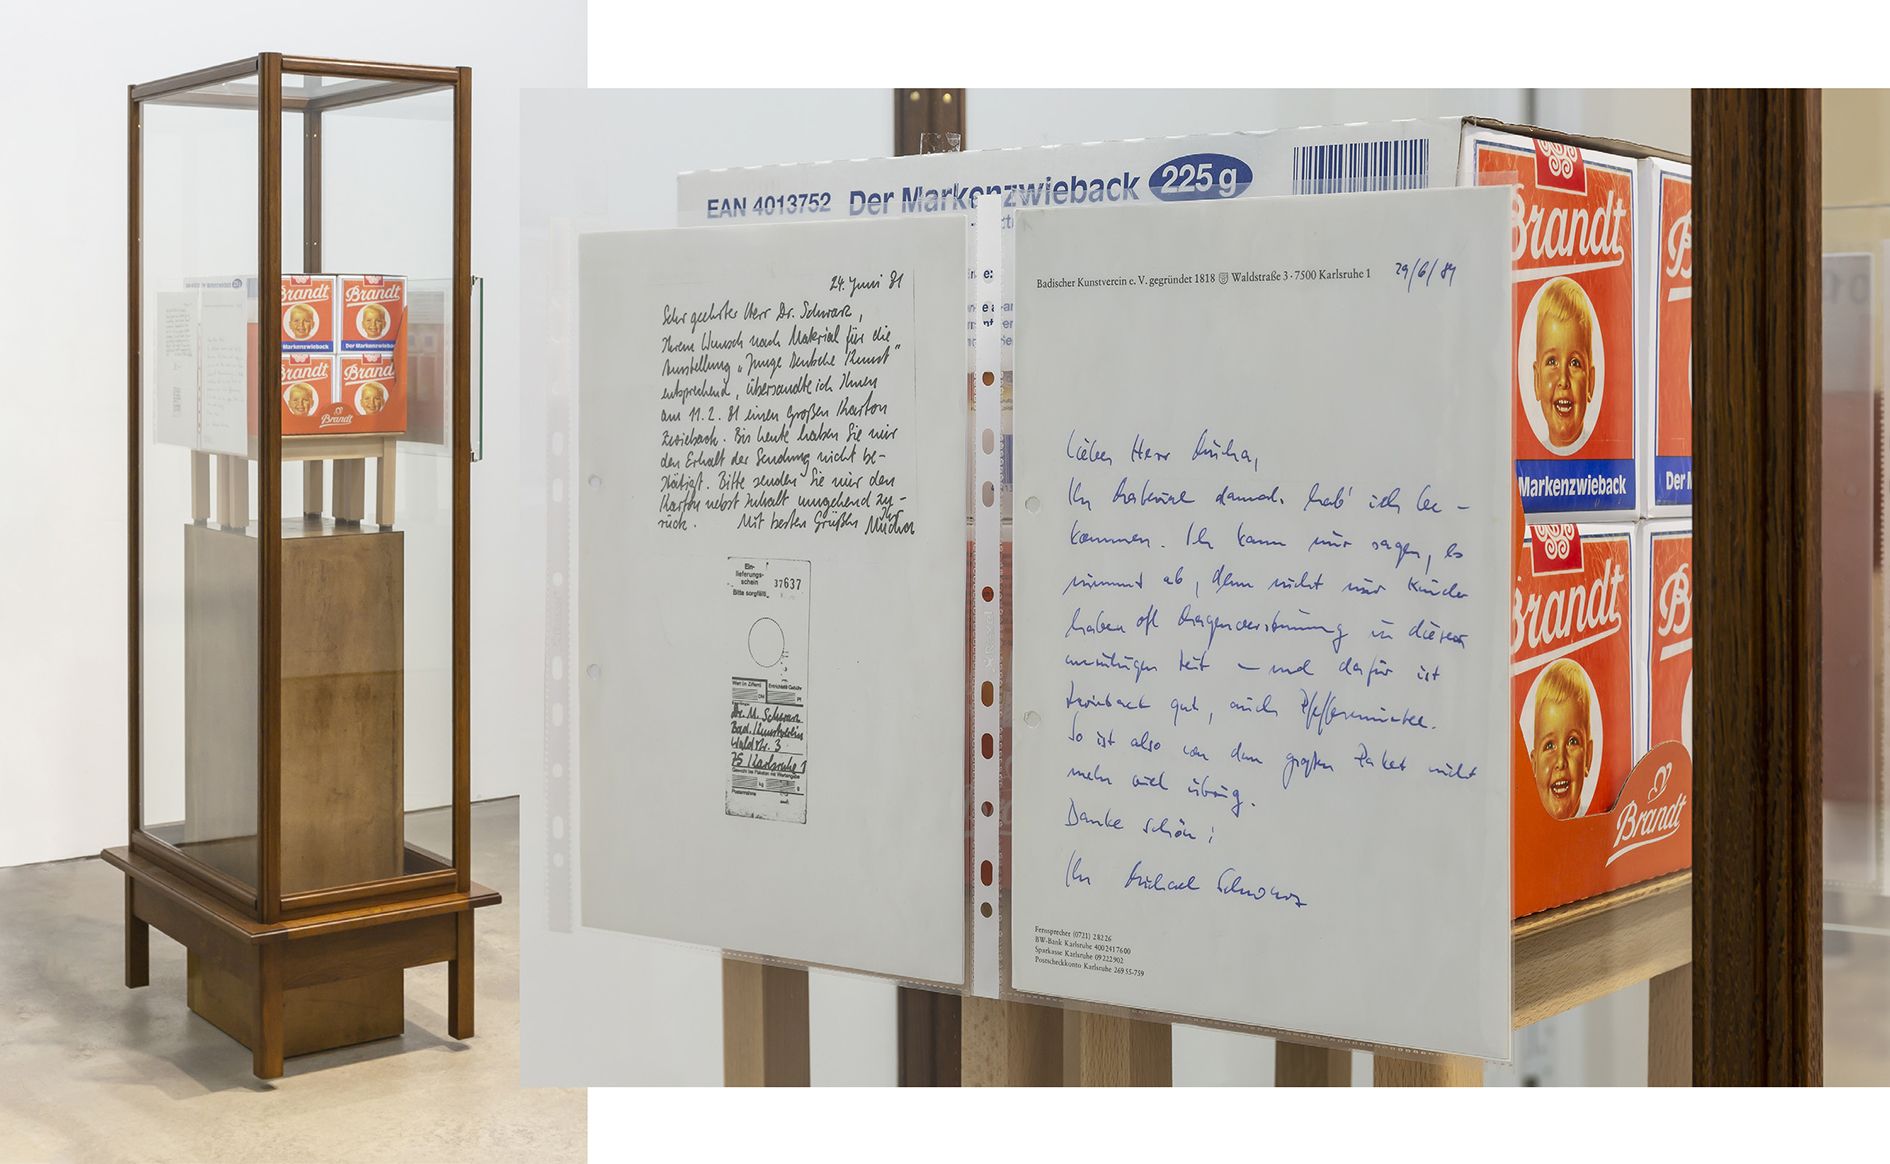 Brandt
Brandt
Markenzwieback
Der Markenzwieb
Brandt
Brandt
Brandt
EAN 4013752 Der Markenzwieback 225 g
24. Juni 81
Sehr geehrter Herr Dr. Schwarz,
Ihrem Wunsch nach Material für die
Ausstellung „Junge Deutsche Kunst“
entsprechend, übersandte ich Ihnen
am 11.2.81 einen großen Karton
Zwieback. Bis heute haben Sie mir
den Erhalt der Sendung nicht be-
stätigt. Bitte senden Sie mir den
Karton nebst Inhalt umgehend zu-
rück. Mit besten Grüßen Ihr Mucha
Ein-
lieferungs-
schein
37637
Bitte sorgfält.
Wert (in Ziffern)
Entrichtete Gebühr
DM
Pf
Dr. M. Schwarz
Bad. Kunstverein
Waldstr. 3
75 Karlsruhe 1
kg
g
Postannahme
Badischer Kunstverein e. V. gegründet 1818 Waldstraße 3 · 7500 Karlsruhe 1
29/6/81
Lieber Herr Mucha,
Ihr Material damals hab' ich be-
kommen. Ich kann nur sagen, es
nimmt ab, denn nicht nur Kinder
haben oft Magenverstimmung in dieser
unruhigen Zeit – und dafür ist
Zwieback gut, auch Pfefferminztee.
So ist also von dem großen Paket nicht
mehr viel übrig.
Danke schön!
Ihr Michael Schwarz
Fernsprecher (0721) 28226
BW-Bank Karlsruhe 4002417600
Sparkasse Karlsruhe 09222902
Postscheckkonto Karlsruhe 26955-759
Brandt
B
Markenzwieback
Der M
Brandt
B
Brandt